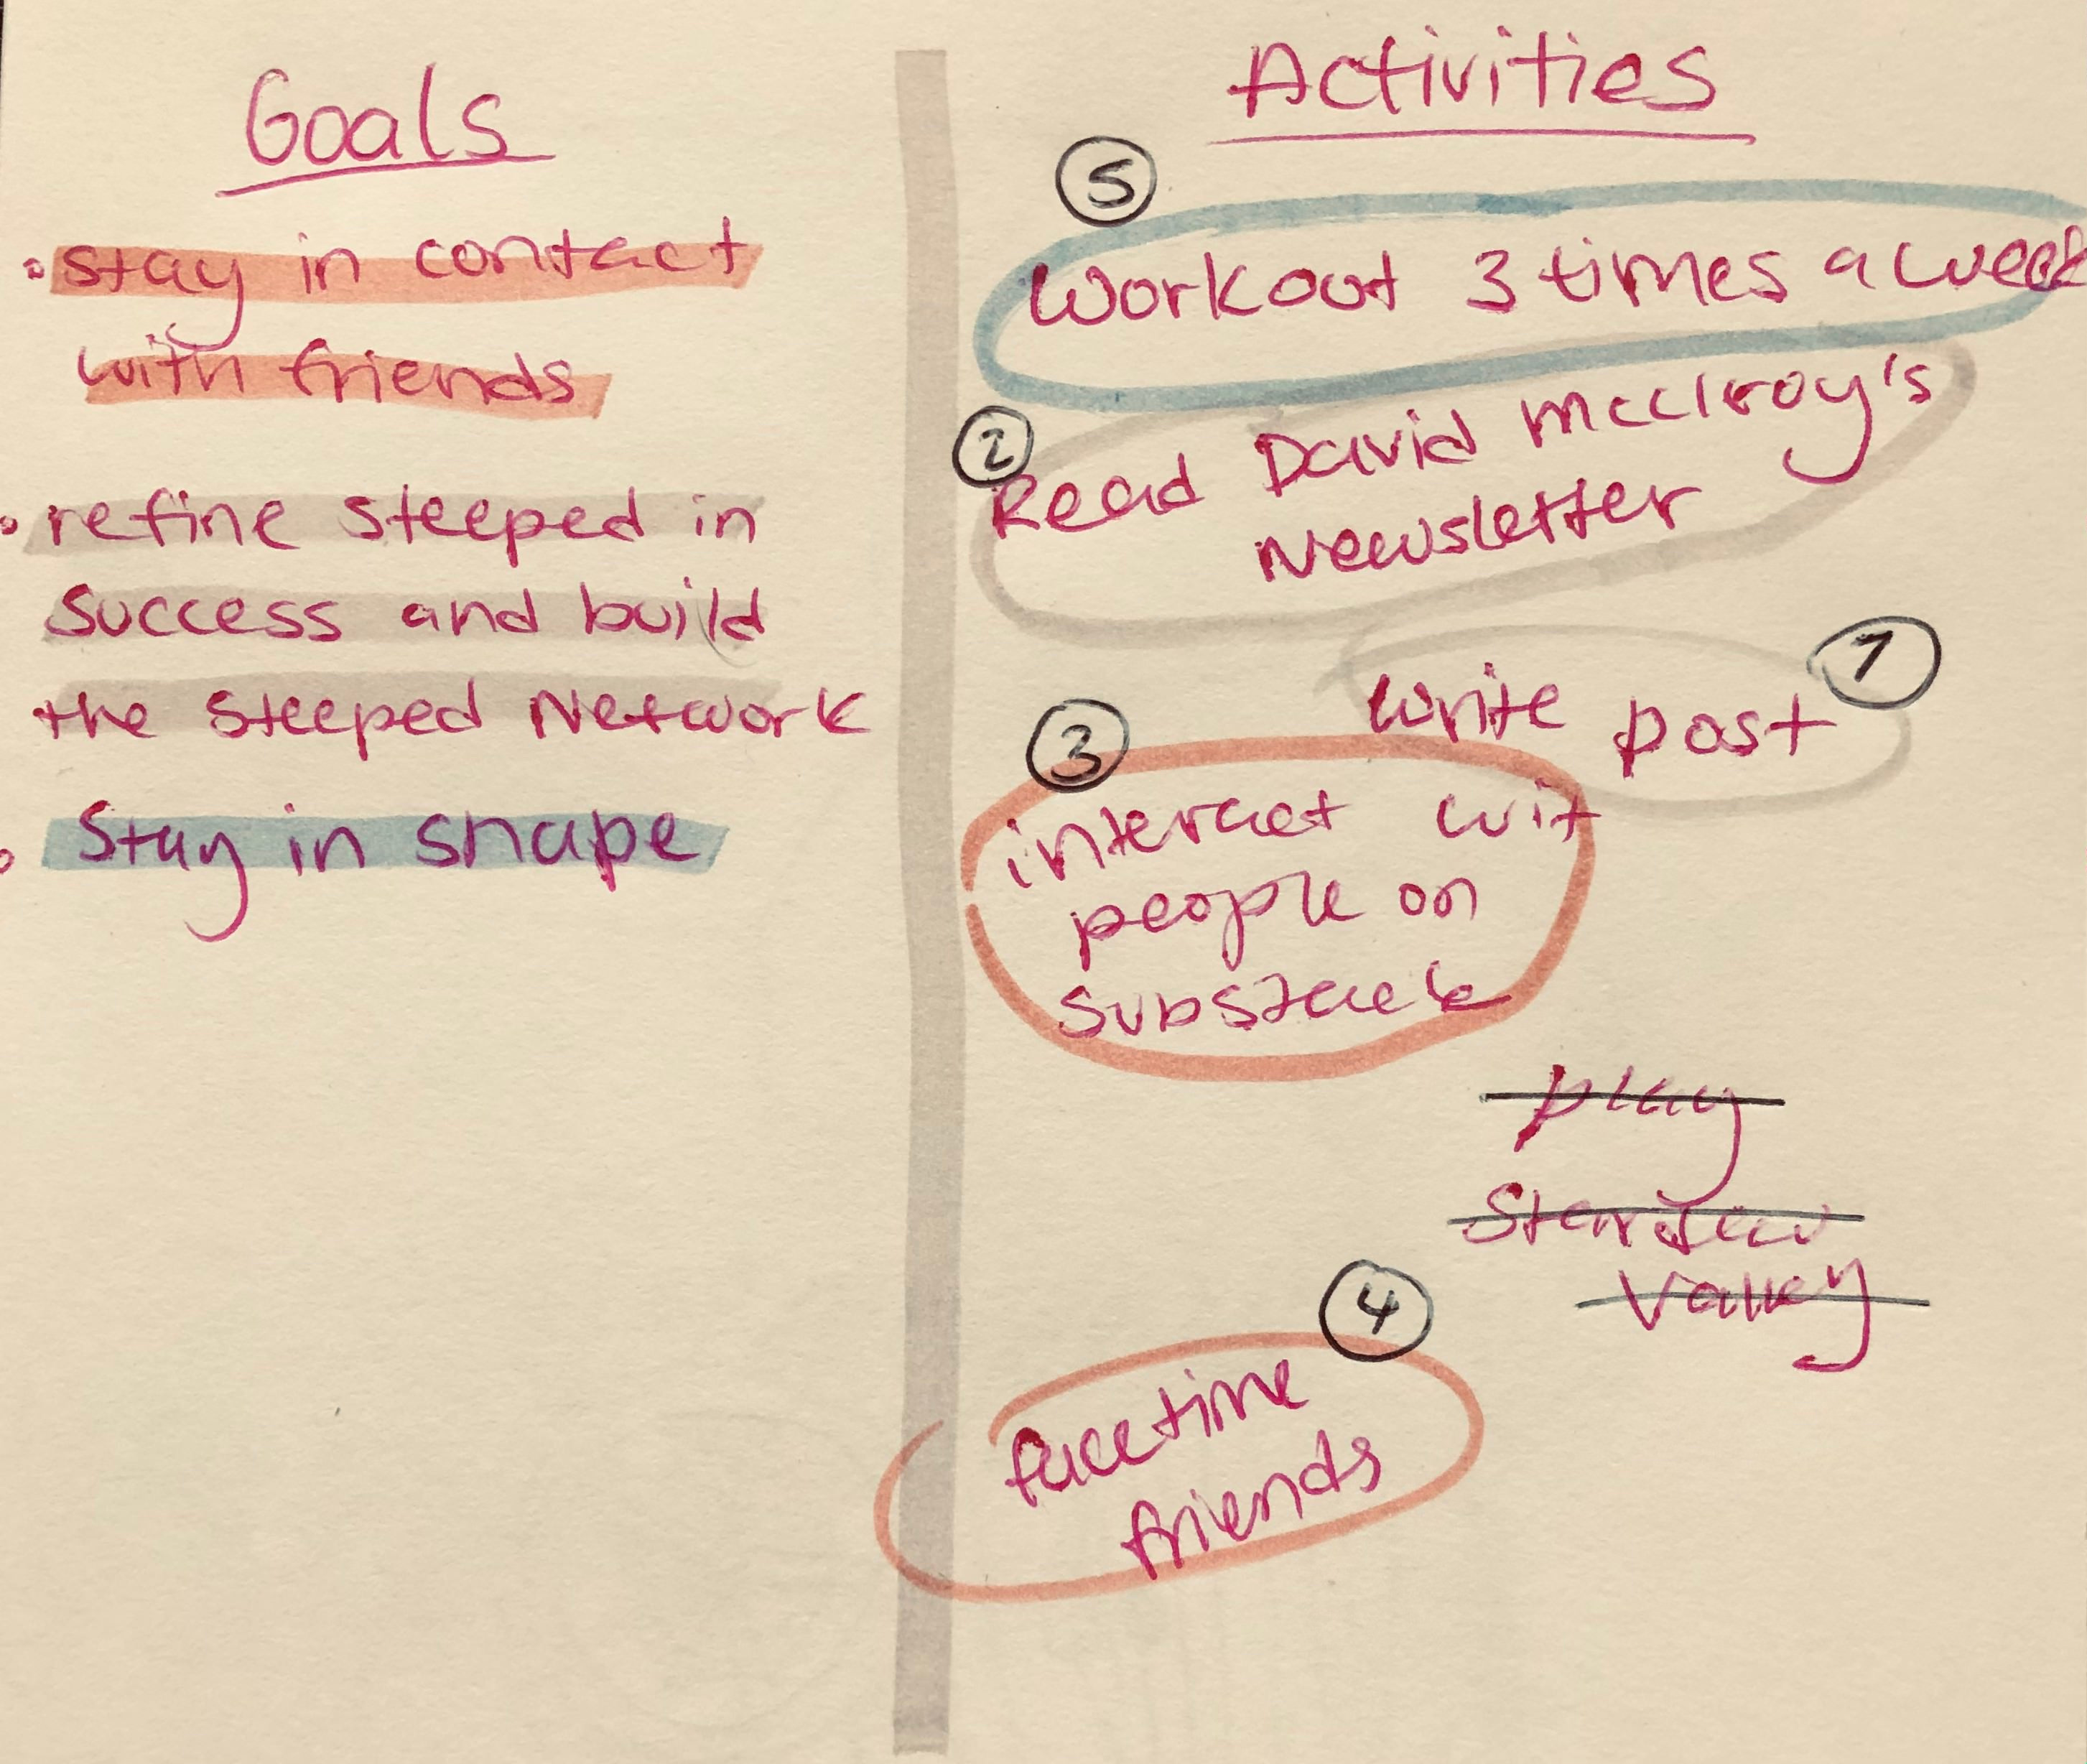 Goals
• stay in contact
with friends
• refine steeped in
success and build
the steeped Network
• Stay in shape
Activities
5
Workout 3 times a week
2
Read David mcclroy's
Newsletter
1
write post
3
interact wit
people on
substack
play
Stardew
Valley
4
facetime
friends